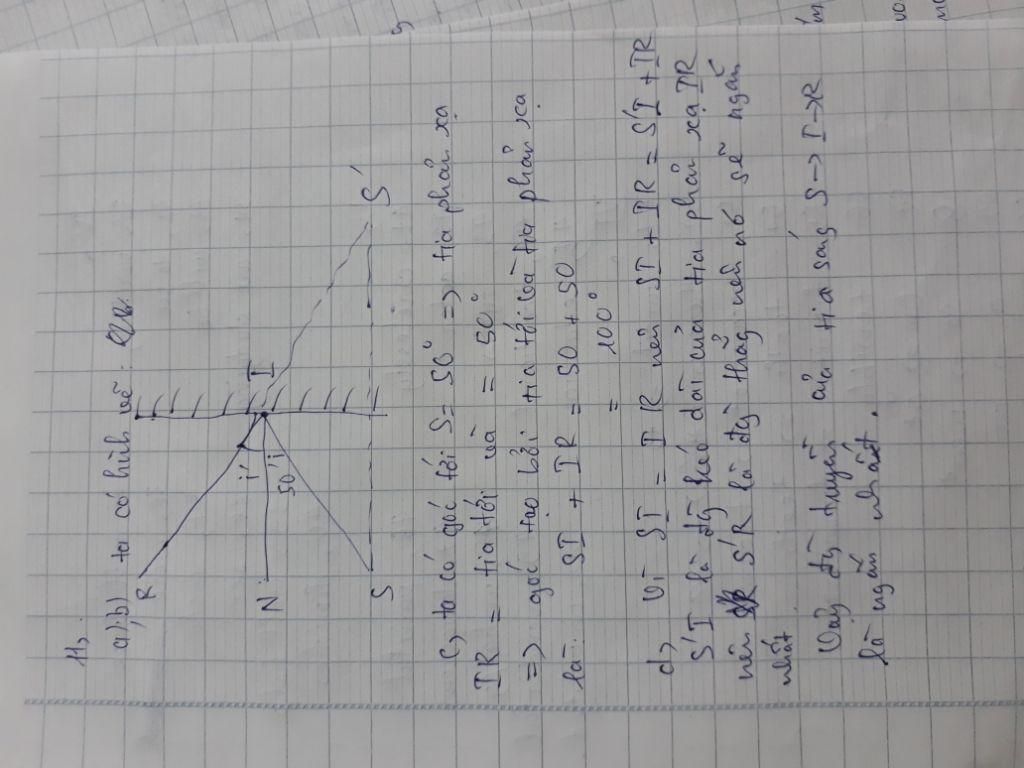 11,
a), b) ta có hình vẽ:
R
i'
I
N
50° i
S
S'
c, ta có góc tới S = 50° => tia phản xạ
IR = tia tới và = 50°
=> góc tạo bởi tia tới và tia phản xạ
là: SI + IR = 50 + 50
= 100°
d, Vì SI = I R nên SI + IR = S'I + IR
S'I là đg kéo dài của tia phản xạ IR
nên S'R là đg thẳng nên nó sẽ ngắn
nhất
Vậy đg truyền của tia sáng S -> I -> R
là ngắn nhất.